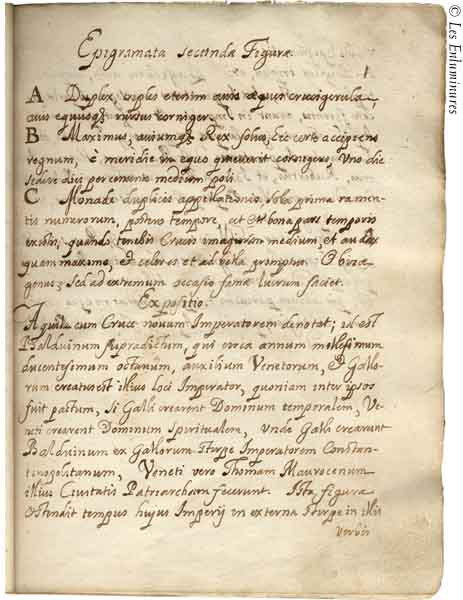 © Les Enluminures
Epigramata secundæ Figuræ
1
A Duplex, triplex etenim auis æque crucigerula
auis equusq; rursus corniger.
B Maximus, auiumq; Rex solus, hic certe accipiens
regnum, è meridie in equo quæ corniger. Uno die
medium poli.
C Monade duplicis appellationis sola prima ramen-
tis numerorum, postero tempore, et bona pars temporis
existis, quando tenebis Crucis imaginem medium, et audax
quam maxime, et celer es et ad bella promptus. Obiræ
genus; Sed ad extremum occasio fæmæ lucrum faciet.
Expositio.
Aquila cum Cruce novum Imperatorem denotat; id est
Balduinum supradictum, qui circa annum millesimum
ducentesimum octauum, auxilium Venetorum, et Gallo-
rum creatus est illius loci Imperator, quoniam inter ipsos
fuit pactum, si Galli crearent Dominum temporalem, Ve-
neti crearent Dominum Spiritualem, unde Galli crearunt
Balduinum ex Gallorum stirpe Imperatorem Constan-
tinopolitanum, Veneti vero Thomam Maurocenum
illius Ciuitatis Patriarcham fecerunt. Ista figura
ostendit tempus hujus Imperij in externa stirpe in illis
verbis